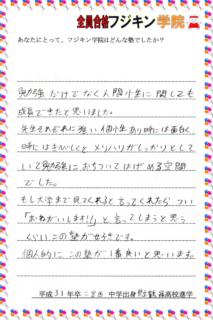 全員合格フジキン学院
あなたにとって、フジキン学院はどんな塾でしたか?
勉強だけでなく人間性に関しても
成長できたと思いました。
先生それぞれに強い個性あり時には面白く、
時にはきびしくとメリハリがしっかりとして
いて勉強におちついてはげめる空間
でした。
もし大学まで見てくれると言ってくれたらつい
「おねがいします!!」と言ってしまうと思う
くらいこの塾が好きです。
個人的にこの塾が1番良いと思います。
平成31年卒 中学出身 高校進学